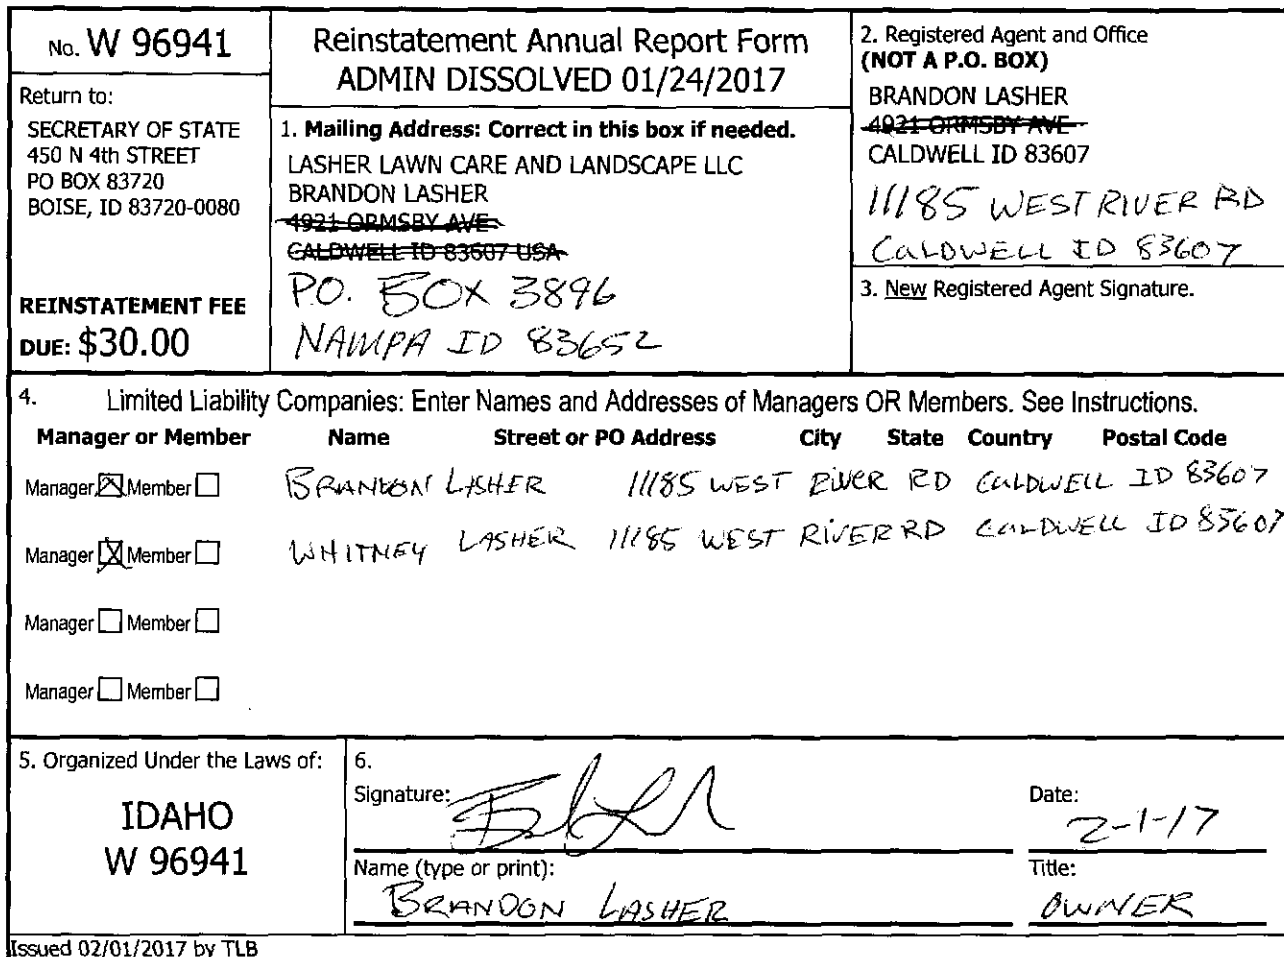 No. W 96941
Return to:
SECRETARY OF STATE
450 N 4th STREET
PO BOX 83720
BOISE, ID 83720-0080
REINSTATEMENT FEE
DUE: $30.00
Reinstatement Annual Report Form
ADMIN DISSOLVED 01/24/2017
1. Mailing Address: Correct in this box if needed.
LASHER LAWN CARE AND LANDSCAPE LLC
BRANDON LASHER
4921 ORMSBY AVE
CALDWELL ID 83607 USA
P.O. BOX 3896
NAMPA ID 83652
2. Registered Agent and Office
(NOT A P.O. BOX)
BRANDON LASHER
4921 ORMSBY AVE
CALDWELL ID 83607
11185 WEST RIVER RD
CALDWELL ID 83607
3. New Registered Agent Signature.
4. Limited Liability Companies: Enter Names and Addresses of Managers OR Members. See Instructions.
Manager or Member Name Street or PO Address City State Country Postal Code
Manager Member BRANDON LASHER 11185 WEST RIVER RD CALDWELL ID 83607
Manager Member WHITNEY LASHER 11185 WEST RIVER RD CALDWELL ID 83607
Manager Member
Manager Member
5. Organized Under the Laws of:
IDAHO
W 96941
6.
Signature:
Date:
2-1-17
Name (type or print):
BRANDON LASHER
Title:
OWNER
Issued 02/01/2017 by TLB